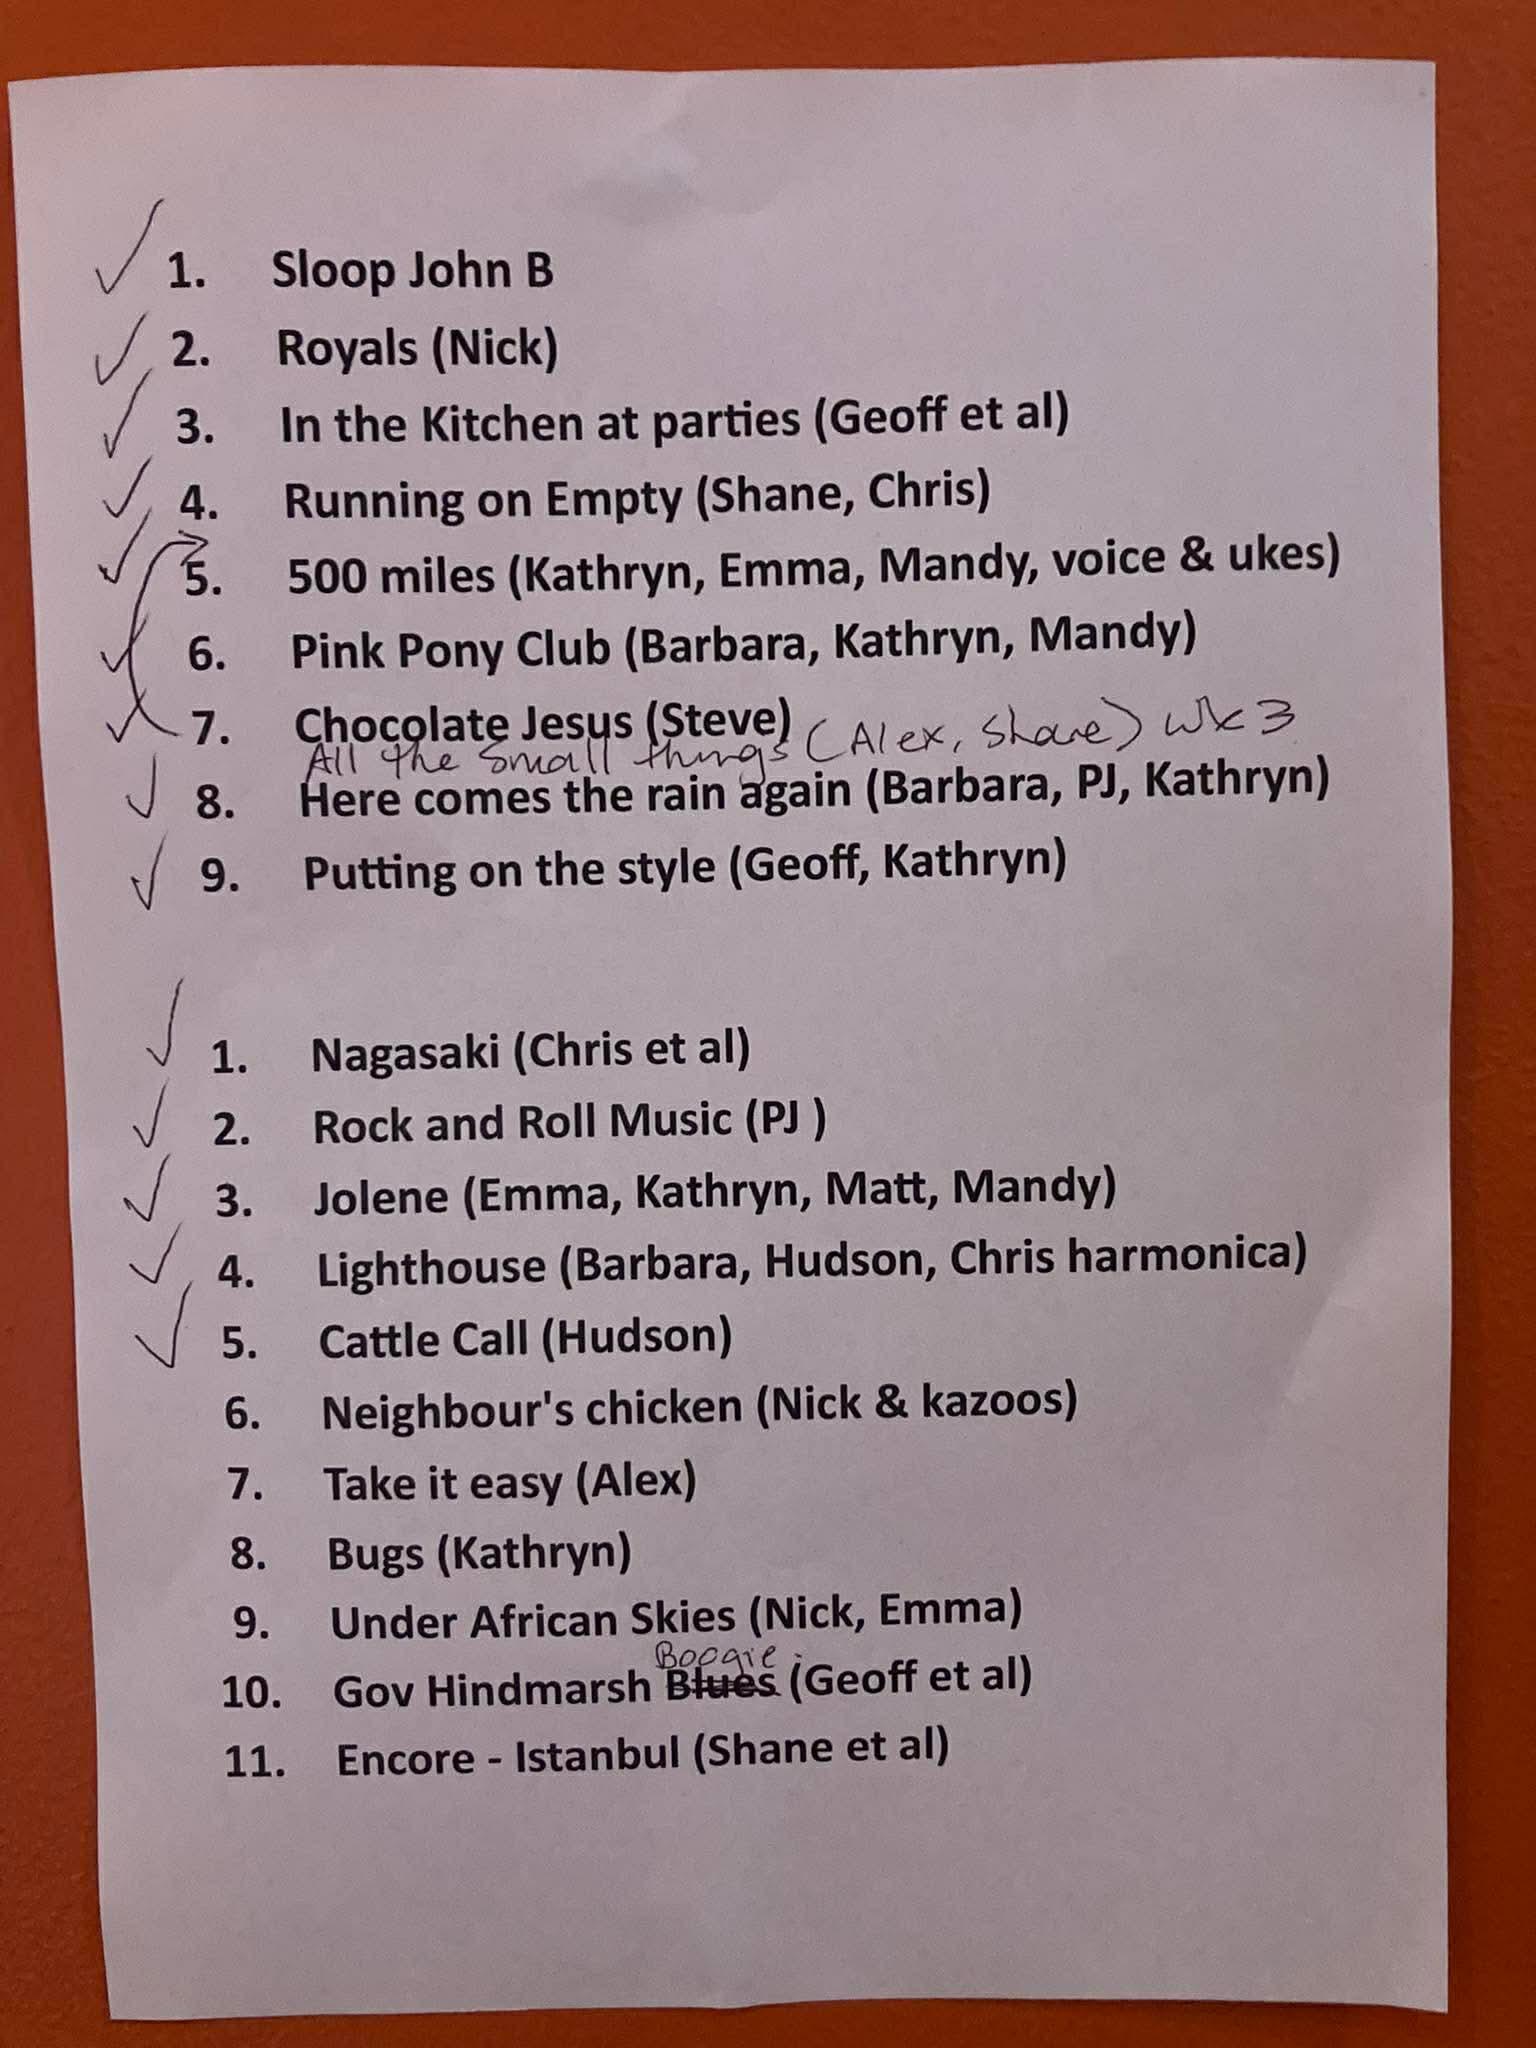 1. Sloop John B
2. Royals (Nick)
3. In the Kitchen at parties (Geoff et al)
4. Running on Empty (Shane, Chris)
5. 500 miles (Kathryn, Emma, Mandy, voice & ukes)
6. Pink Pony Club (Barbara, Kathryn, Mandy)
7. Chocolate Jesus (Steve)
All the small things (Alex, Shane) wk 3
8. Here comes the rain again (Barbara, PJ, Kathryn)
9. Putting on the style (Geoff, Kathryn)
1. Nagasaki (Chris et al)
2. Rock and Roll Music (PJ )
3. Jolene (Emma, Kathryn, Matt, Mandy)
4. Lighthouse (Barbara, Hudson, Chris harmonica)
5. Cattle Call (Hudson)
6. Neighbour's chicken (Nick & kazoos)
7. Take it easy (Alex)
8. Bugs (Kathryn)
9. Under African Skies (Nick, Emma)
Boogie
10. Gov Hindmarsh Blues (Geoff et al)
11. Encore - Istanbul (Shane et al)